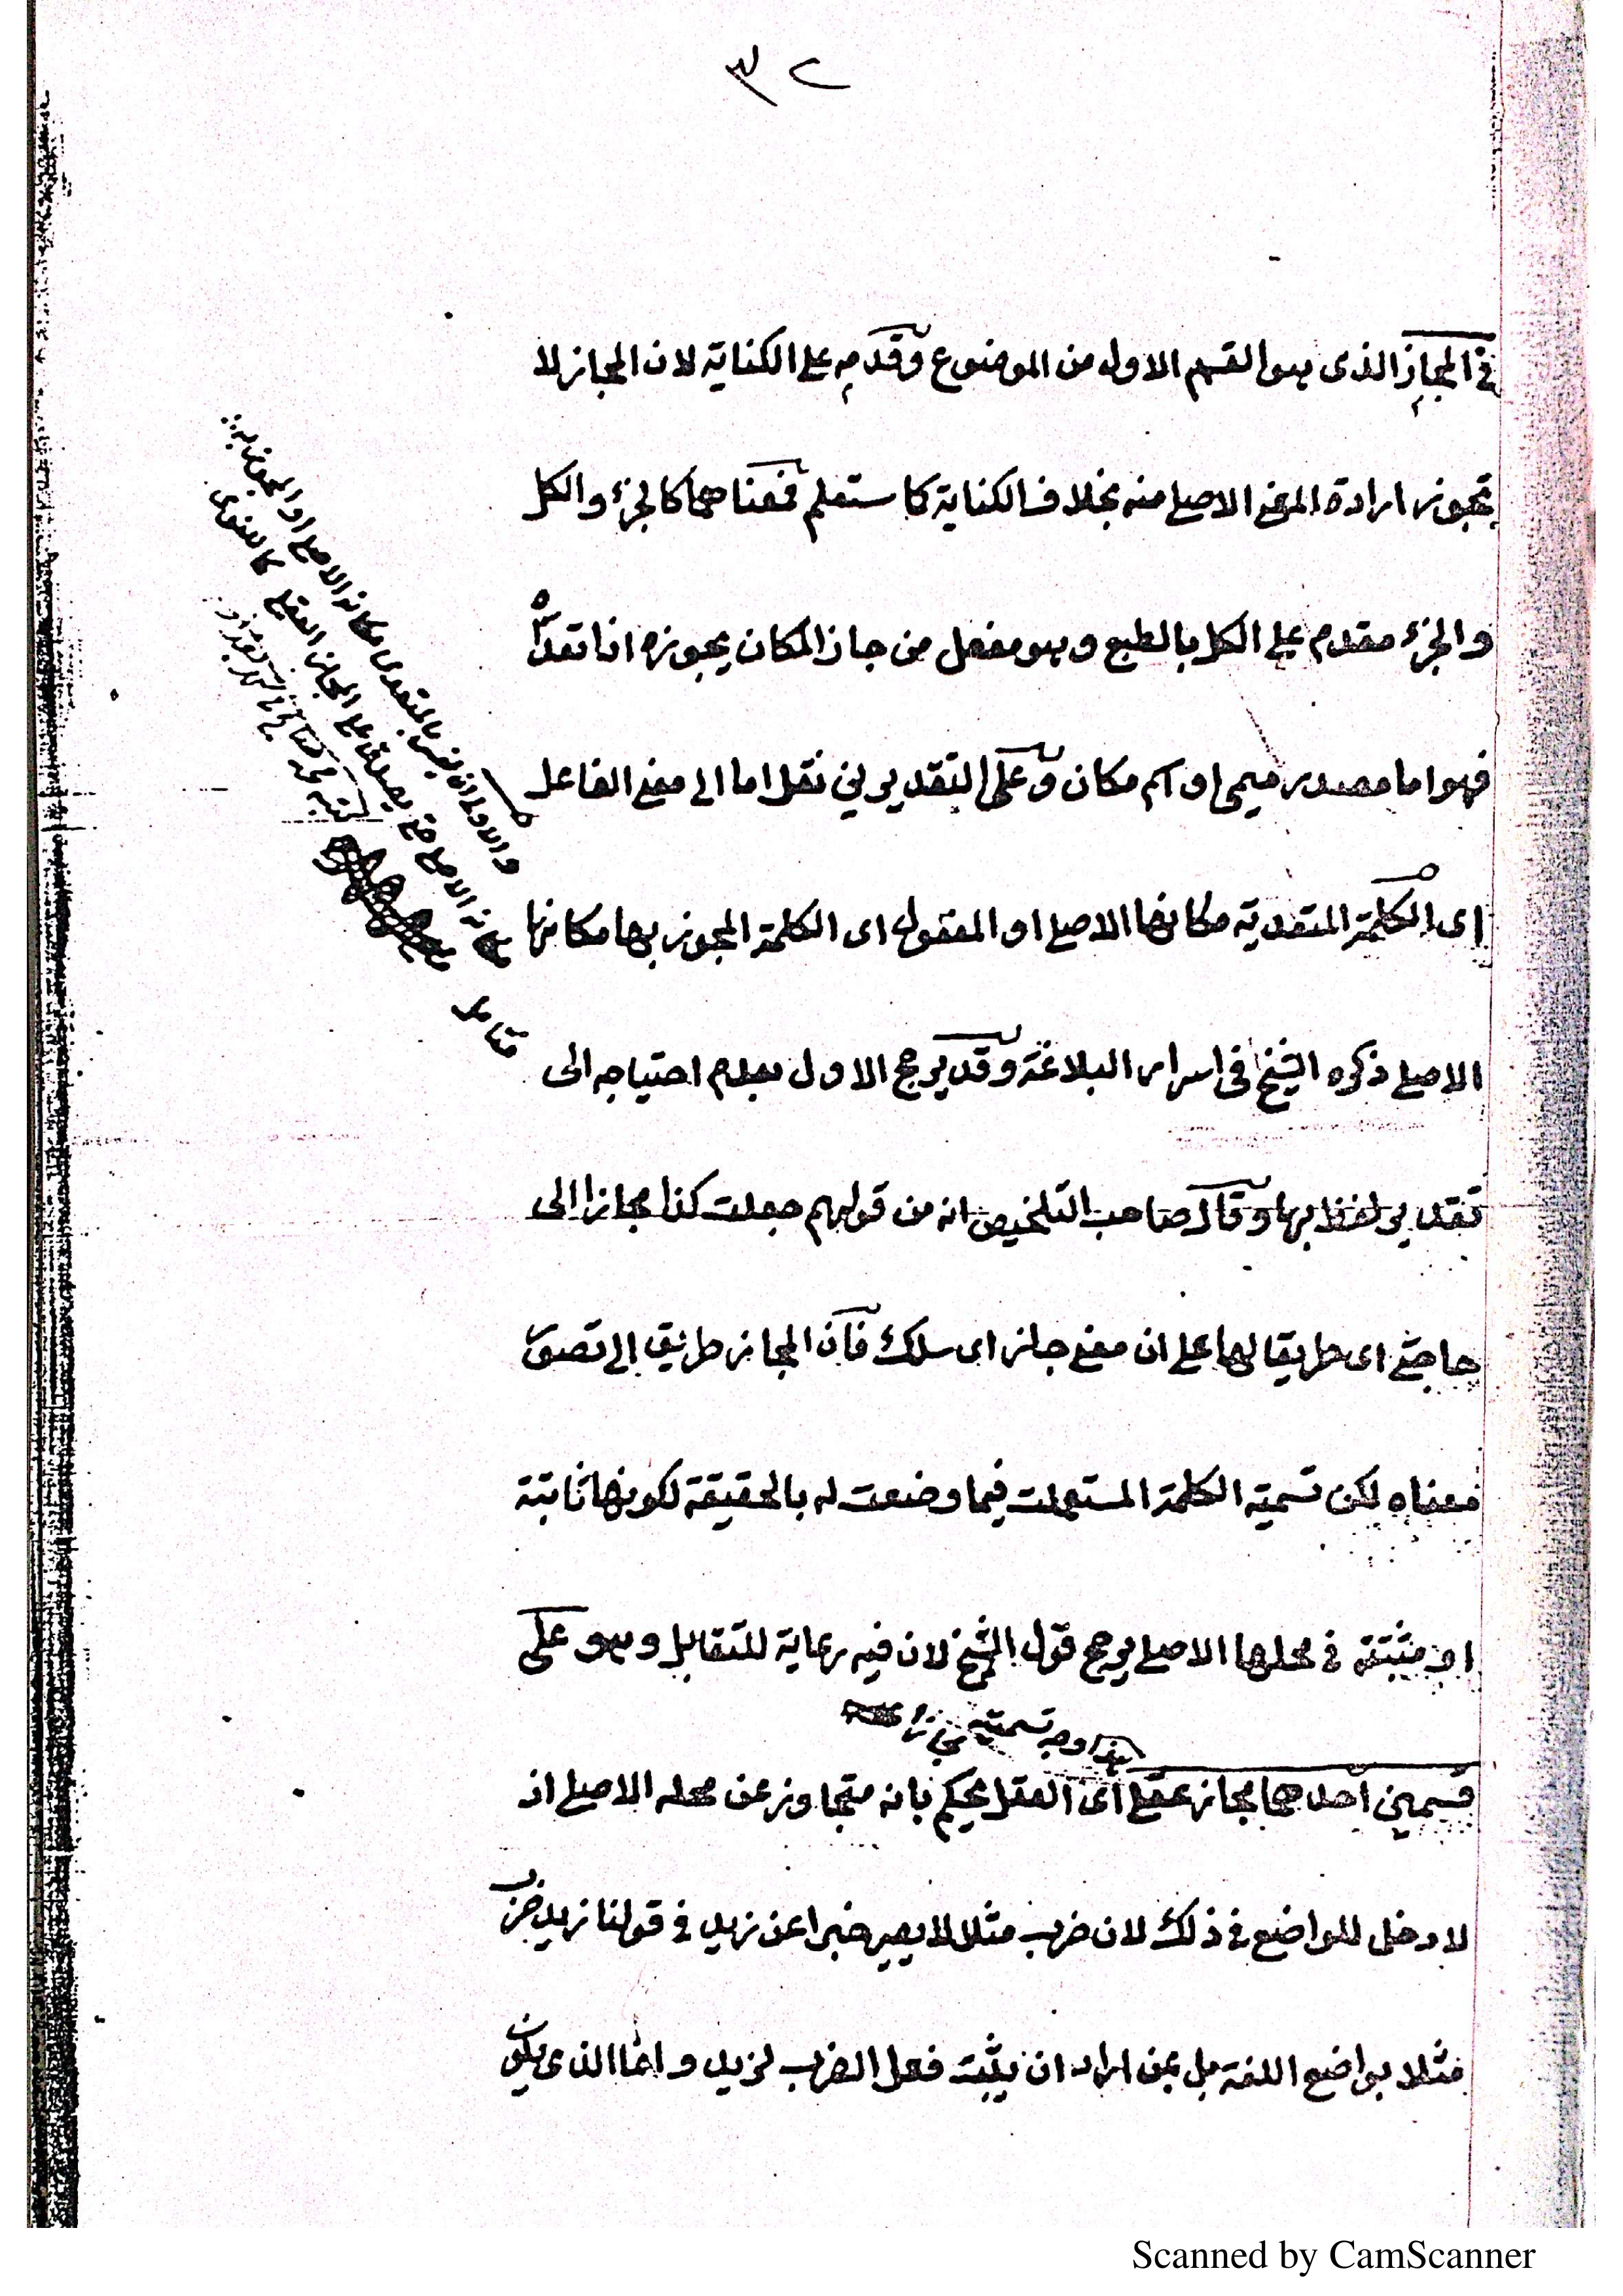 ٣٢
في المجاز الذى هو القسم الاول من الموضوع وقدمه على الكناية لان المجاز لا
تجوز ارادة المعنى الاصلى منه بخلاف الكناية كما ستعلم فمعناهما كالجزء والكل
والجزء مقدم على الكل بالطبع وهو مفعل من جاز المكان يجوزه اذا تعداه
فهو اما مصدر ميمى او اسم مكان وعلى التقديرين نقل اما الى معنى الفاعل
اى الكلمة المتعدية مكانها الاصلى او المفعول اى الكلمة المجوز بها مكانها
الاصلى ذكره الشيخ فى اسرار البلاغة وقد يرجح الاول بعدم احتياجه الى
تقدير لفظ بها وقال صاحب التلخيص انه من قولهم جعلت كذا مجازا الى
حاجتى اى طريقا لها على ان معنى جاز اى سلك فان المجاز طريق الى تصور
معناه لكن تسمية الكلمة المستعملت فيما وضعت له بالحقيقة لكونها ثابتة
او مثبتة فى محلها الاصلى يرجح قول الشيخ لان فيه رعاية للتقابل وهو على
هذا وجه تسميته مجازا
قسمين احدهما مجاز عقلى اى العقل يحكم بانه متجاوز عن محله الاصلى اذ
لا دخل للواضع فى ذلك لان ضرب مثلا لا يصير خبرا عن زيد فى قولنا زيد ضرب
مثلا بواضع اللغة بل بمن اراد ان يثبت فعل الضرب لزيد وانما الذى يكون
والاولى ان يفسر بالمتعدى مكانه الاصلى او المجوز به
مكانه الاصلى حتى يصدق على المجاز العقلى كاللغوى
Scanned by CamScanner